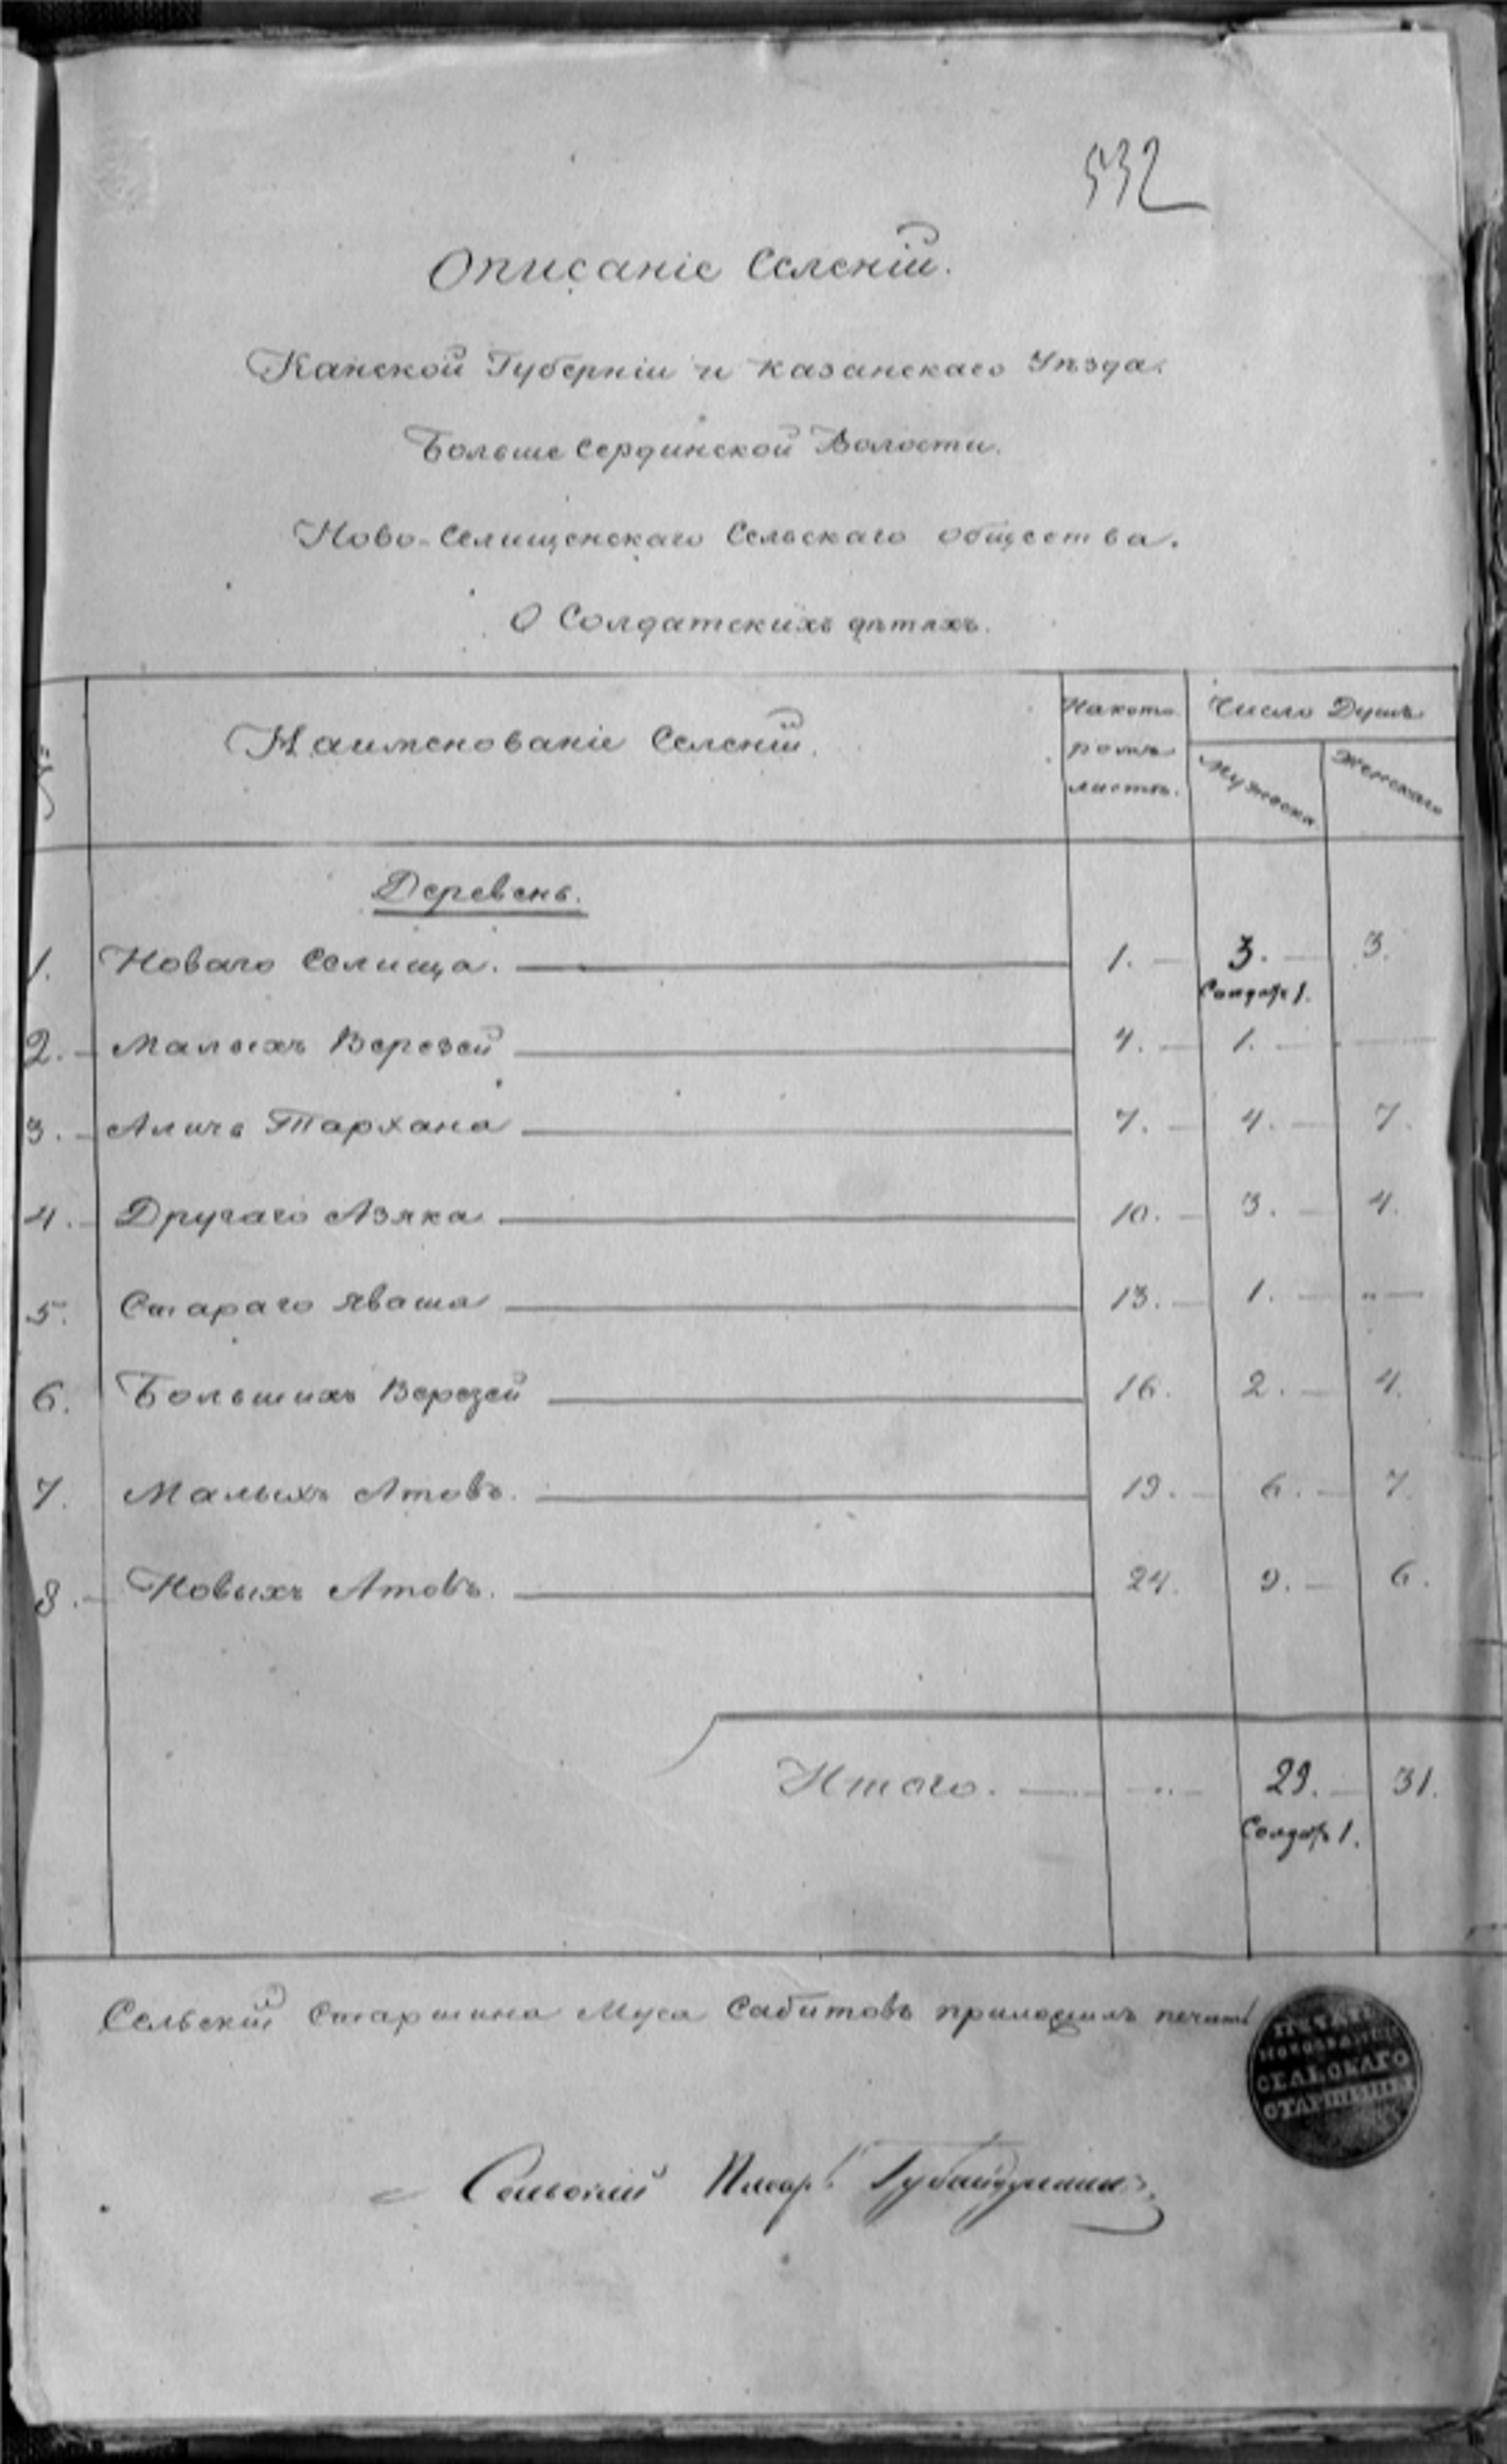 532
Описаніе Селеній.
Канской Губерніи и казанскаго Уѣзда.
Больше Сердинской Волости.
Ново-Селищенскаго Сельскаго общества.
О Солдатскихъ дѣтяхъ.
№ Наименованіе Селеній. Накото ромъ листѣ. Число Душъ
Мужеска Женскаго
Деревень.
1. Новаго Селища. — 1. — 3. — 3.
Солдат 1.
2. — Малыхъ Верезей — 4. — 1. — —
3. — Аличь Тархана — 7. — 4. — 7.
4. — Другаго Азяка — 10. — 3. — 4.
5. Стараго Яваша — 13. — 1. — „ —
6. Большихъ Верезей — 16. 2. — 4.
7. Малыхъ Атовъ. — 19. — 6. — 7.
8. — Новыхъ Атовъ. — 24. 9. — 6.
Итого. — „ — 29. — 31.
Солдат 1.
Сельскій Старшина Муса Сабитовъ приложилъ печать
ПЕЧАТЬ
СЕЛЬСКАГО
СТАРШИНЫ
Сельскій Писарь Губайдуллинъ